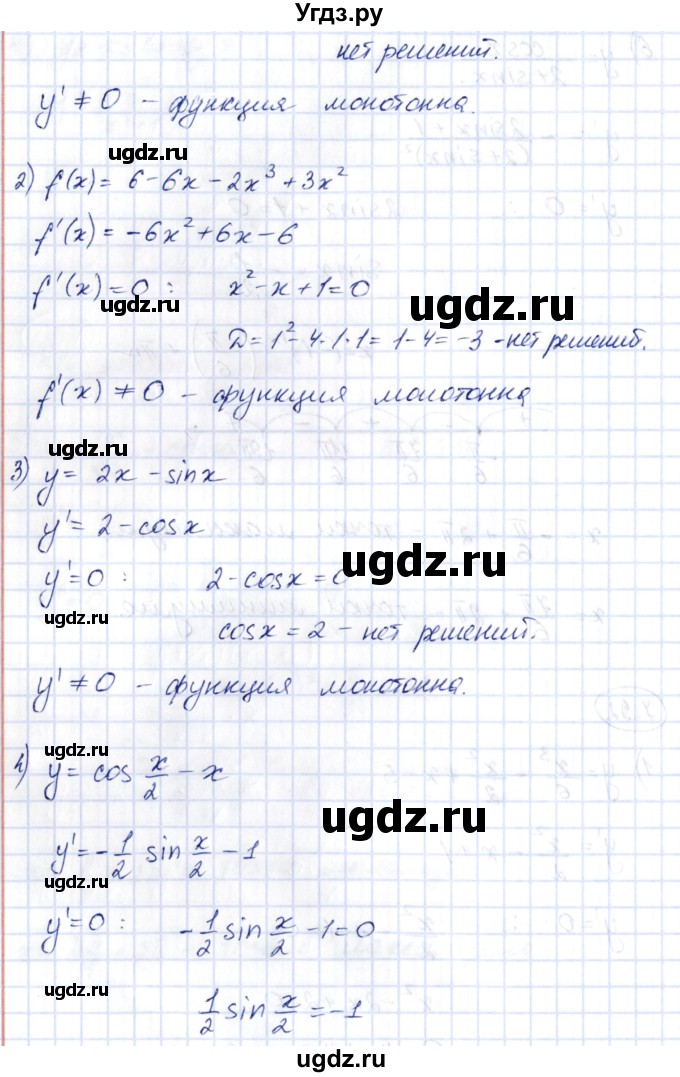 Угдз.ру
нет решений.
y' ≠ 0 – функция монотонна.
ugdz.ru
2) f(x) = 6 - 6x - 2x³ + 3x²
f'(x) = -6x² + 6x - 6
ugdz.ru
f'(x) = 0 : x² - x + 1 = 0
ugdz.ru
D = 1² - 4·1·1 = 1 - 4 = -3 - нет решений.
f'(x) ≠ 0 – функция монотонна
ugdz.ru
3) y = 2x - sinx
y' = 2 - cosx
ugdz.ru
y' = 0 : 2 - cosx = 0
ugdz.ru
cosx = 2 – нет решений.
y' ≠ 0 – функция монотонна.
ugdz.ru
4) y = cos x/2 - x
ugdz.ru
y' = -1/2 sin x/2 - 1
ugdz.ru
y' = 0 : -1/2 sin x/2 - 1 = 0
ugdz.ru
1/2 sin x/2 = -1
ugdz.ru